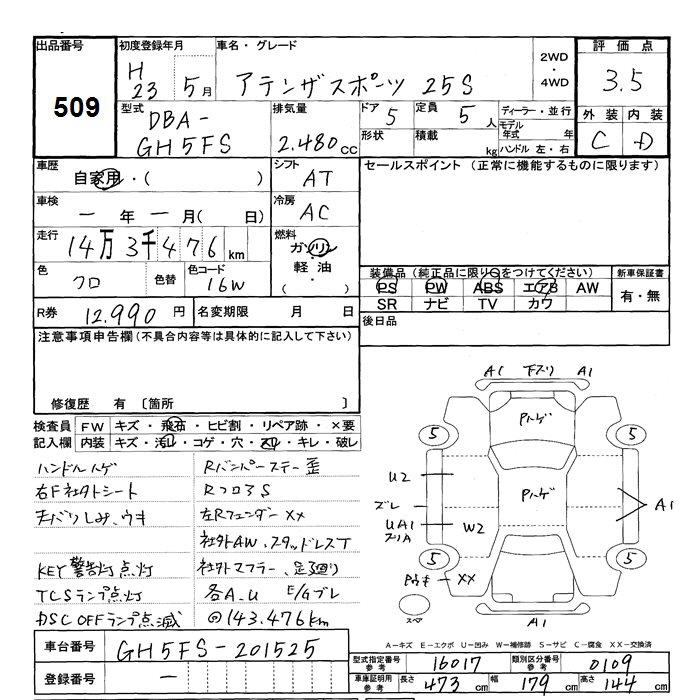 出品番号 初度登録年月 車名・グレード 2WD・4WD 評価点
509 H23 5月 アテンザスポーツ 25S 3.5
型式 排気量 ドア 定員 ディーラー・並行 外装 内装
DBA-GH5FS 2.480cc 5 5人 モデル年式 年 C D
形状 積載 kg ハンドル 左・右
車歴 シフト セールスポイント (正常に機能するものに限ります)
自家用・( ) AT
車検 冷房
― 年 ― 月( 日) AC
走行 燃料
14万3千476km ガソリン・軽油・( )
色 色替 色コード 装備品(純正品に限り○をつけてください) 新車保証書
クロ 16W PS PW ABS エアB AW 有・無
SR ナビ TV カワ
R券 12.990円 名変期限 月 日 後日品
注意事項申告欄(不具合内容等は具体的に記入して下さい)
修復歴 有 〔箇所 〕
検査員 FW キズ・飛石・ヒビ割・リペア跡・×要
記入欄 内装 キズ・汚れ・コゲ・穴・スリ・キレ・破レ
ハンドルハゲ Rバンパーステー歪
右F社外シート RフロアS
天バリしみ、ウキ 左Rフェンダー××
社外AW、スタッドレスT
KEY警告灯点灯 社外マフラー、足廻り
TCSランプ点灯 各A.U E/Gブレ
DSC OFFランプ点滅 ◎143.476km
A1 下スリ A1
Pハゲ
5 5
U2
Pハゲ
ズレ A1
UA1 W2
5 5
Pウキ ××
スペア A1
A-キズ E-エクボ U-凹み W-補修跡 S-サビ C-腐食 XX-交換済
車台番号 GH5FS-201525
登録番号 ―
型式指定番号 参考 16017 類別区分番号 参考 0109
車庫証明用 参考 長さ 473cm 幅 179cm 高さ 144cm